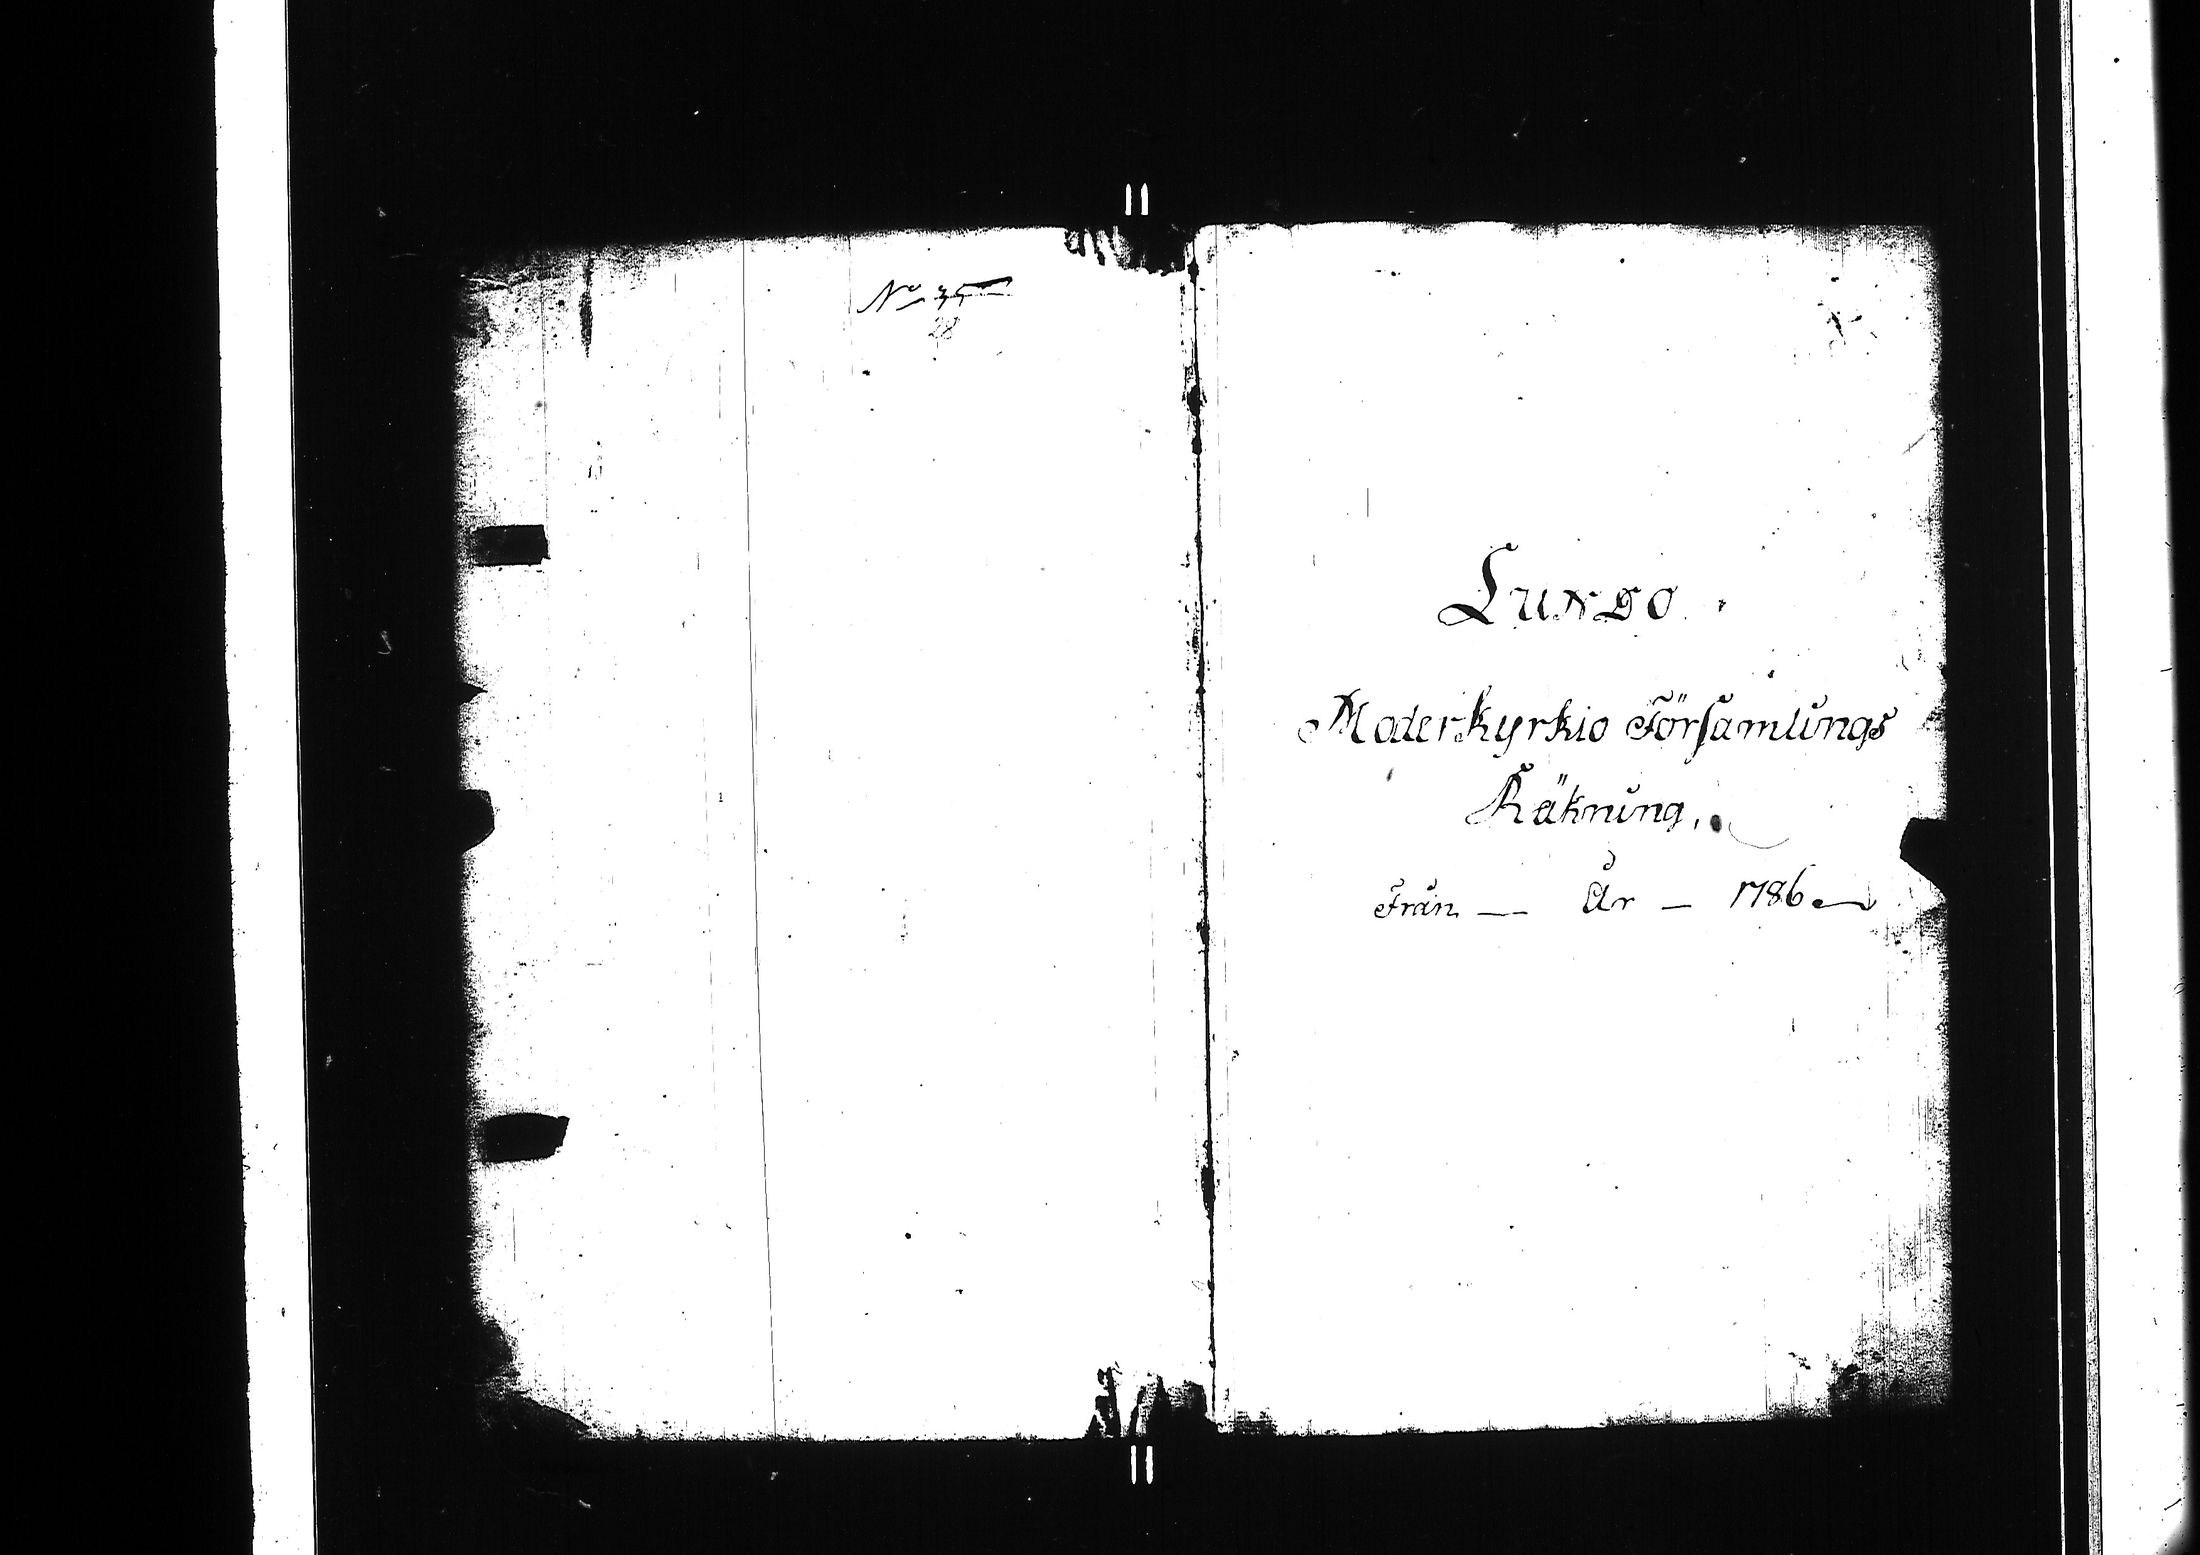 No 35
28
LUNDO.
Moderkyrkio Församlings
Räkning.
Från — År — 1786